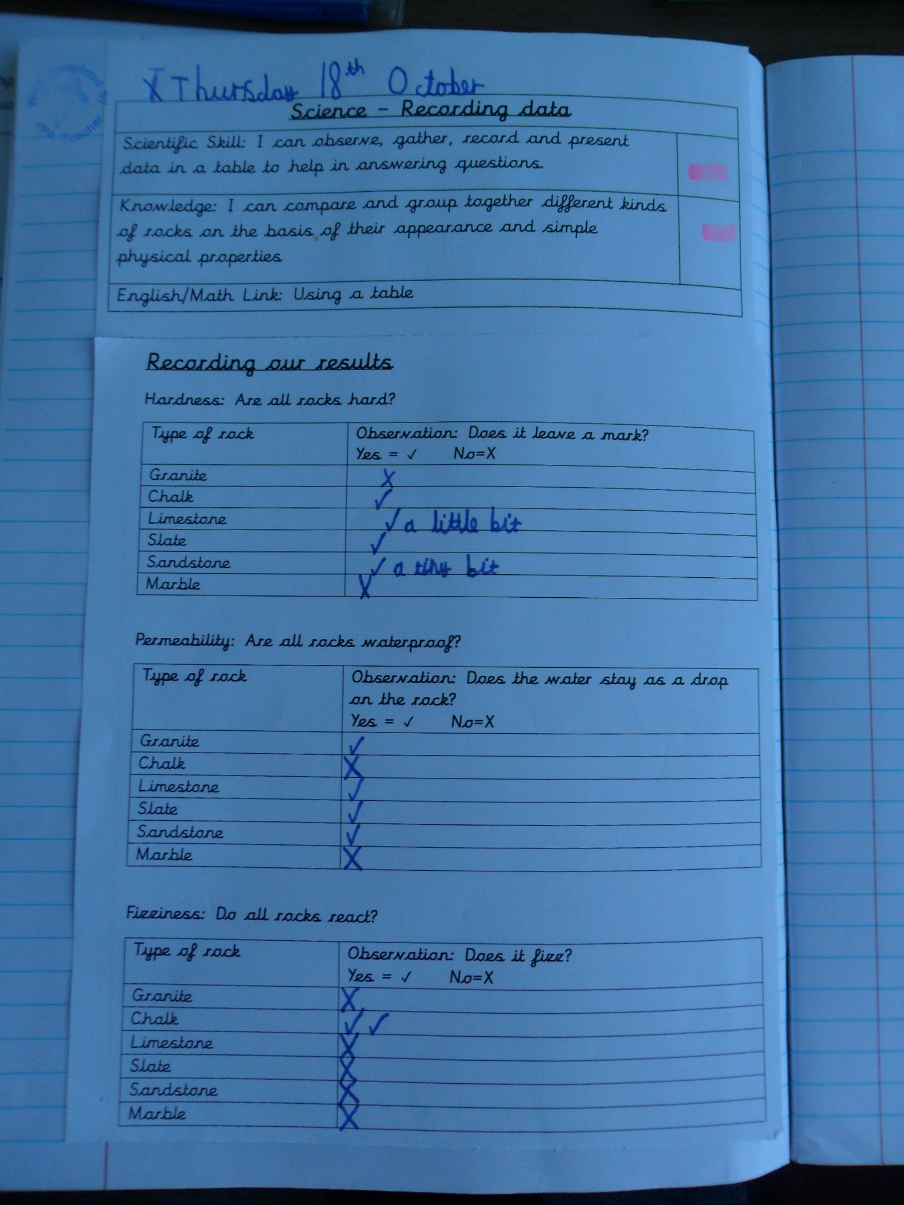 X Thursday 18th October
Science - Recording data
Scientific Skill: I can observe, gather, record and present
data in a table to help in answering questions.
Knowledge: I can compare and group together different kinds
of rocks on the basis of their appearance and simple
physical properties
English/Math Link: Using a table
Recording our results
Hardness: Are all rocks hard?
Type of rock Observation: Does it leave a mark?
Yes = ✓ No=X
Granite X
Chalk ✓
Limestone ✓ a little bit
Slate ✓
Sandstone ✓ a tiny bit
Marble X
Permeability: Are all rocks waterproof?
Type of rock Observation: Does the water stay as a drop
on the rock?
Yes = ✓ No=X
Granite ✓
Chalk X
Limestone ✓
Slate ✓
Sandstone ✓
Marble X
Fizziness: Do all rocks react?
Type of rock Observation: Does it fizz?
Yes = ✓ No=X
Granite X
Chalk ✓ ✓
Limestone X
Slate X
Sandstone X
Marble X